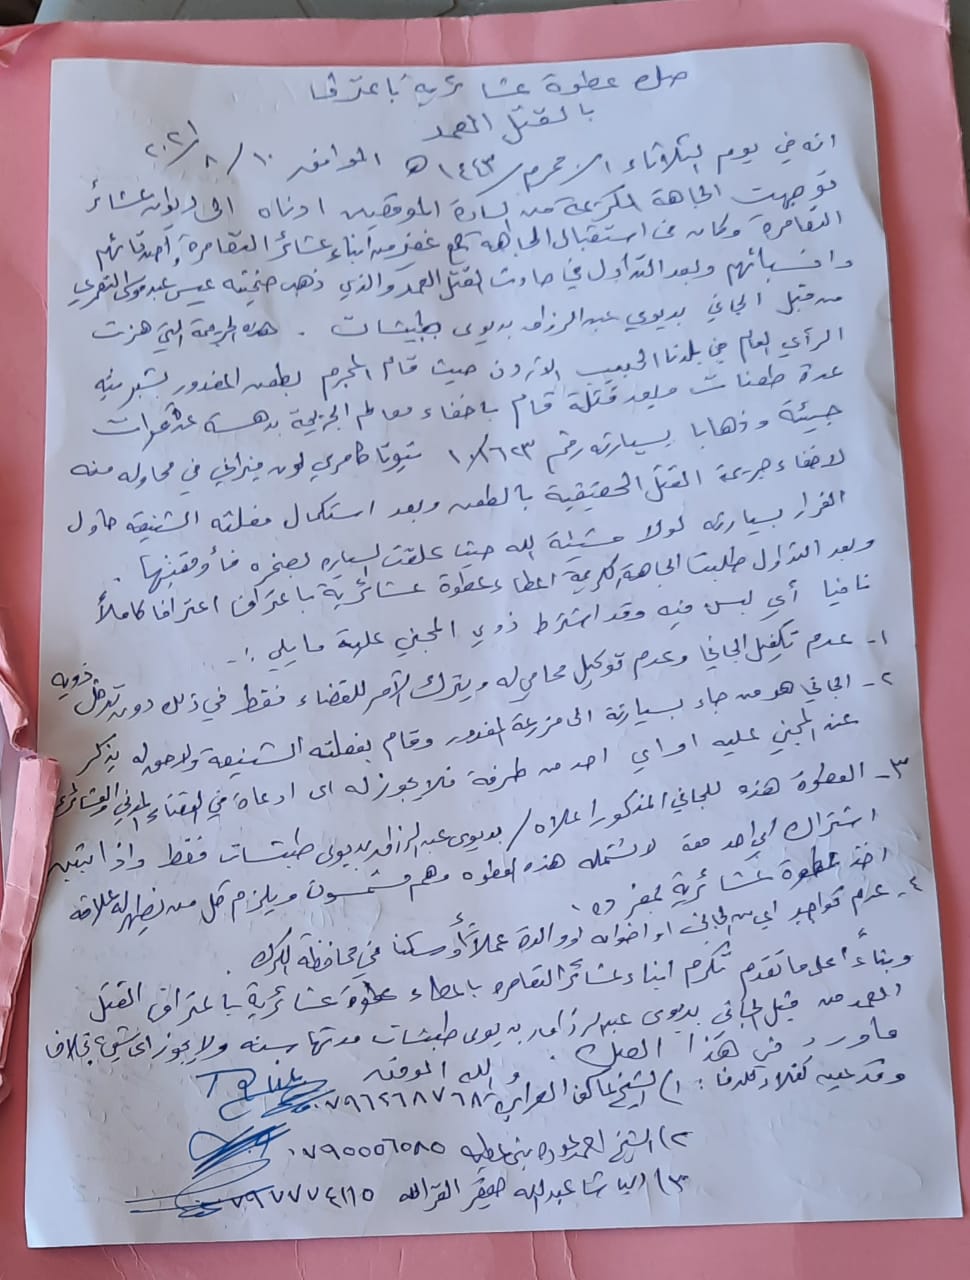 صك عطوة عشائرية باعتراف
بالقتل العمد
انه في يوم الثلاثاء ١ / محرم / ١٤٤٣ ه الموافق ١٠ / ٨ / ٢٠٢١
توجهت الجاهة الكريمة من السادة الموقعين ادناه الى ديوان عشائر
التعامرة وكان في استقبال الجاهه جمع غفير من ابناء عشائر التعامرة واصدقائهم
وانسبائهم وبعد التداول في حادث القتل العمد والذي ذهب ضحيته عيسى عبد موسى التعمري
من قبل الجاني بديوي عبد الرزاق بديوي طبيشات . هذه الجريمة التي هزت
الرأي العام في بلدنا الحبيب الاردن حيث قام المجرم بطعن المغدور بشبريته
عدة طعنات وبعد قتلة قام باخفاء معالم الجريمة بدهسة عدة مرات
جيئة وذهابا بسيارته رقم تيوتا كامري لون فيراني في محاوله منه
لاخفاء جريمة القتل الحقيقية بالطعن وبعد استكمال فعلته الشنيعة حاول
الفرار بسيارته لولا مشيئة الله حيث علقت السياره بصخره فأوقفتها .
وبعد التداول طلبت الجاهة الكريمة اعطاء عطوة عشائرية باعتراف اعترافا كاملاً
نافيا أي لبس فيه وقد اشترط ذوي المجني علية ما يلي :-
١- عدم تكفيل الجاني وعدم توكيل محامي له ويترك الأمر للقضاء فقط في ذلك دون تدخل ذويه
٢- الجاني هو من جاء بسيارتة الى مزرعة المغدور وقام بفعلته الشنيعة ولاحق له يذكر
عند المجني عليه او اي احد من طرفة فلا يجوز له اي ادعاء في القضاء المدني او العشائري
٣- العطوة هذه للجاني المذكور اعلاه / بديوي عبد الرزاق بديوي طبيشات فقط واذا تبين
اشتراك اي احد معة لا تشمله هذه العطوه وهم مشمسون ويلزم كل من يظهر له علاقة
اخذ عطوة عشائرية بمفرده .
٤- عدم تواجد اي من الجاني او اخوانه او والدة عملاً أو سكنا في محافظة الكرك .
وبناءً على ما تقدم تكرم ابناء عشائر التعامره باعطاء عطوة عشائرية باعتراف القتل
العمد من قبل الجاني بديوي عبد الرزاق بديوي طبيشات مدتها سنه ولا يجوز اي شيء بخلاف
ما ورد في هذا الصك . والله الموفق
وقد عينه كفلاء للدفا : ١) الشيخ عاكف ٠٧٩٦٢٦٨٧٦٨
٢) الشيخ احمد بني عطيه ٠٧٩٥٥٥٦٥٨٥
٣) الباشا عبدالله صقر القرالله